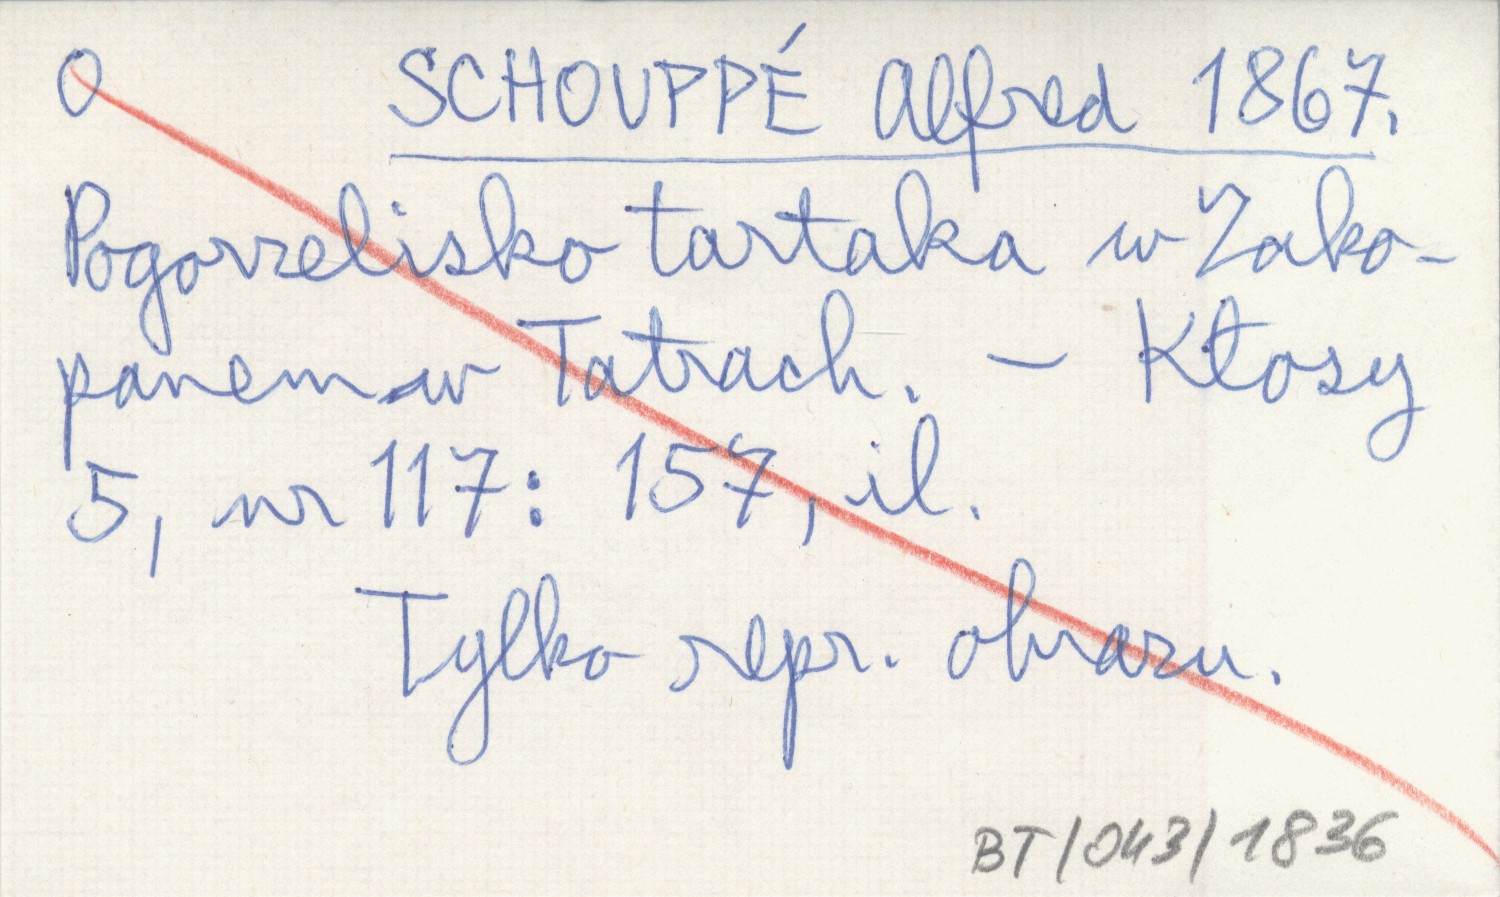 O SCHOUPPÉ Alfred 1867.
Pogorzelisko tartaka w Zako-
panem w Tatrach. – Kłosy
5, nr 117: 157, il.
Tylko repr. obrazu.
BT/043/1836